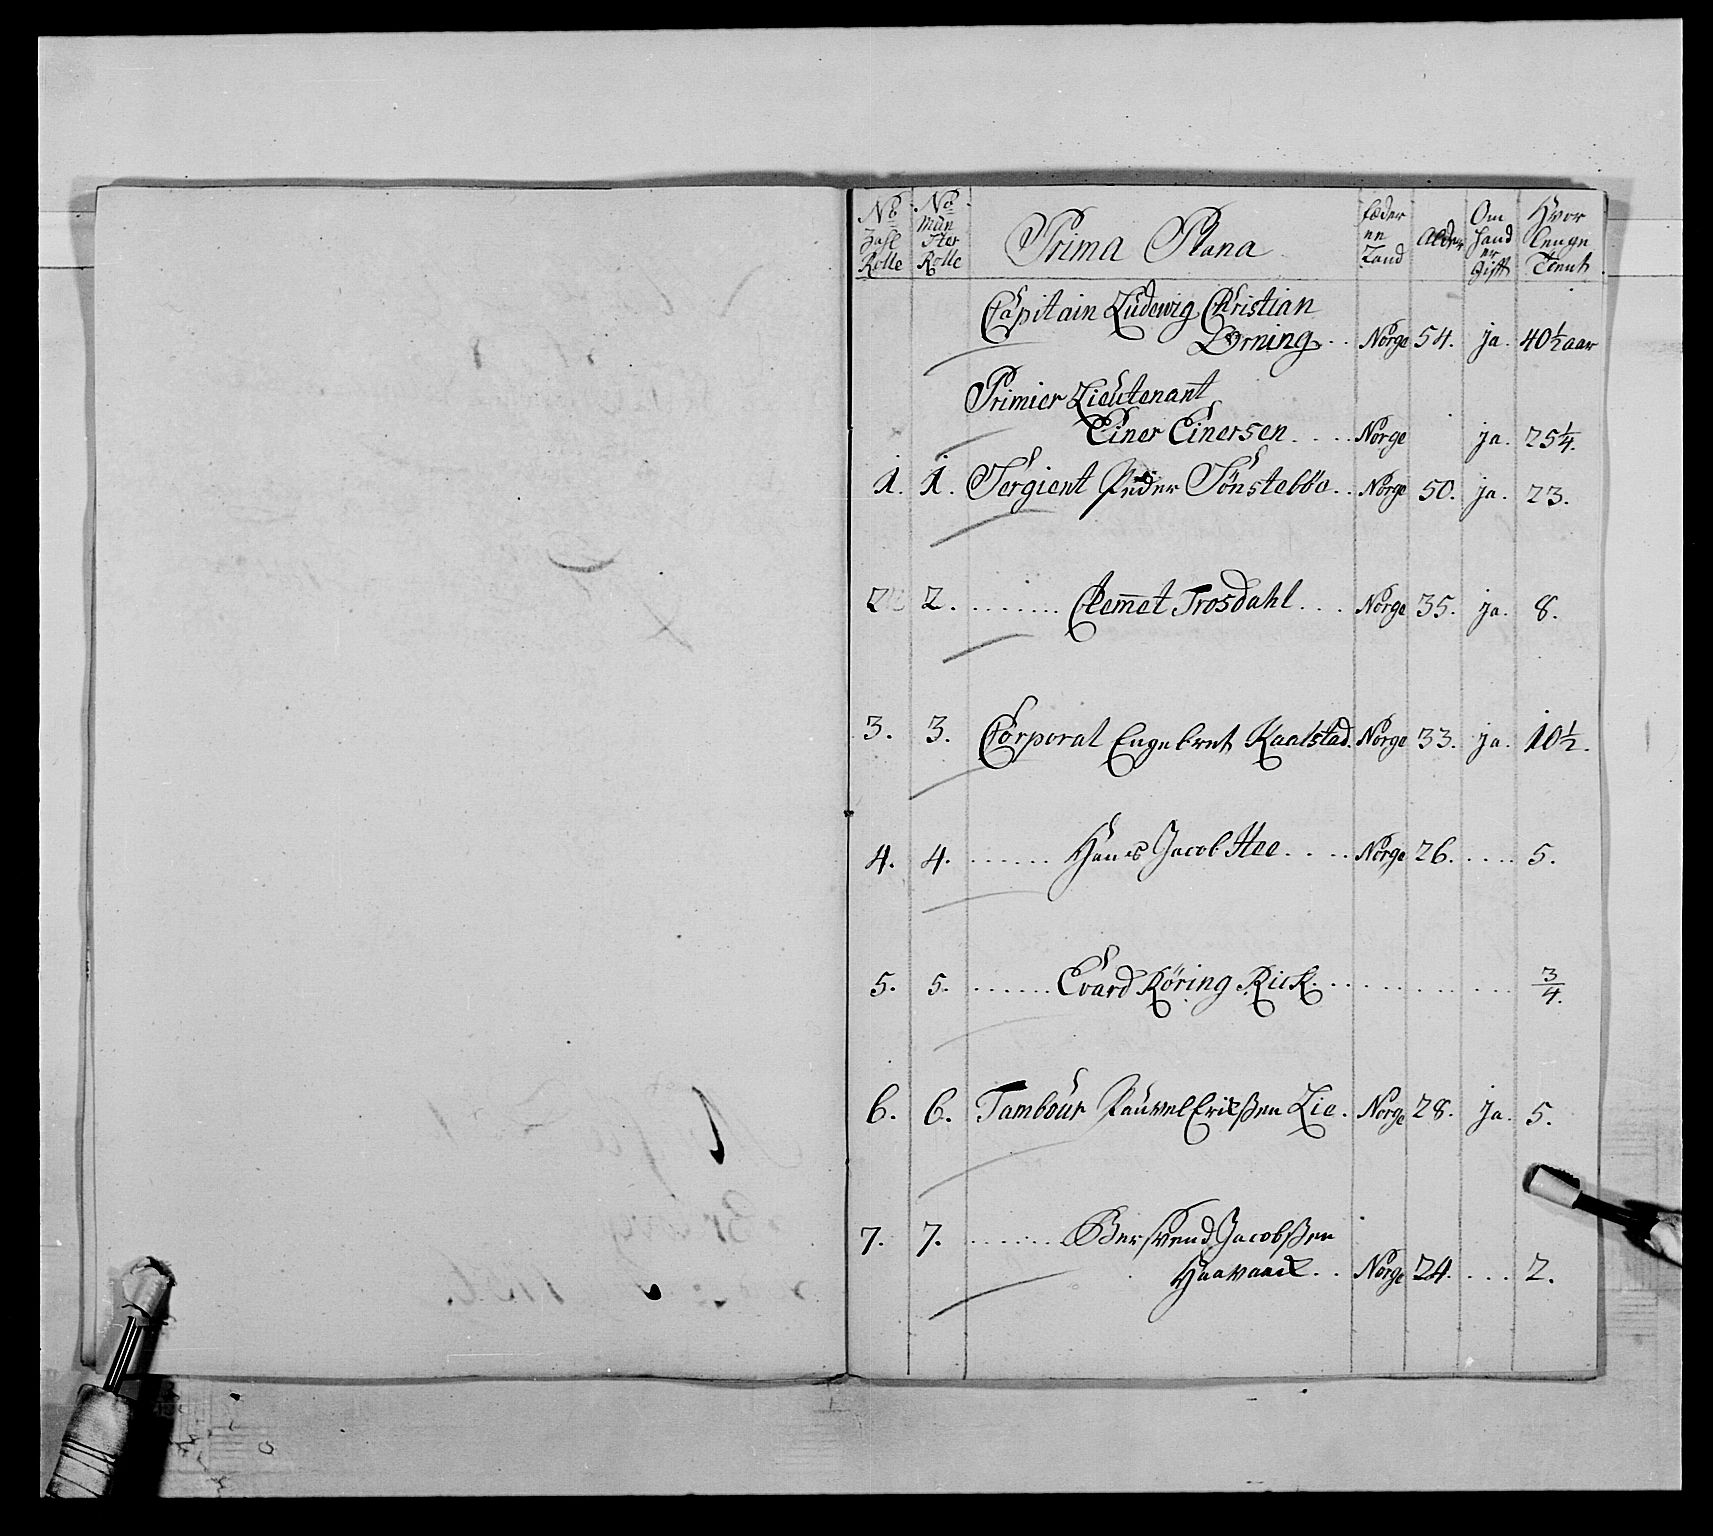 No Zahl Rolle No Mün ster Rolle Prima Plana Fæder ne Land Alder Om hand er gift Hvor lenge tient
Capitain Ludewig Christian
Dorning . . Norge 54. ja. 40½ aar
Primier Lieutenant
Einer Einersen . . . . Norge ja. 25¼.
1. 1. Sergient Peder Tönsteböe . . Norge 50. ja. 23.
2. 2. . . . . . . . . Clemmet Trosdahl . . . Norge 35. ja. 8.
3. 3. Corporal Engebret Kaalstad. Norge 33. ja. 10½.
4. 4. . . . . . . . Hans Jacob Hee . . . . Norge 26. . . . . 5.
5. 5. . . . . . . . Evard Röring Rick. . . . . . . . . . . . ¾.
6. 6. Tambour Pauvel Erikßen Lie. Norge 28. ja. 5.
7. 7. . . . . . . . . Berswend Jacobßen
. . Norge 24. . . . 2.